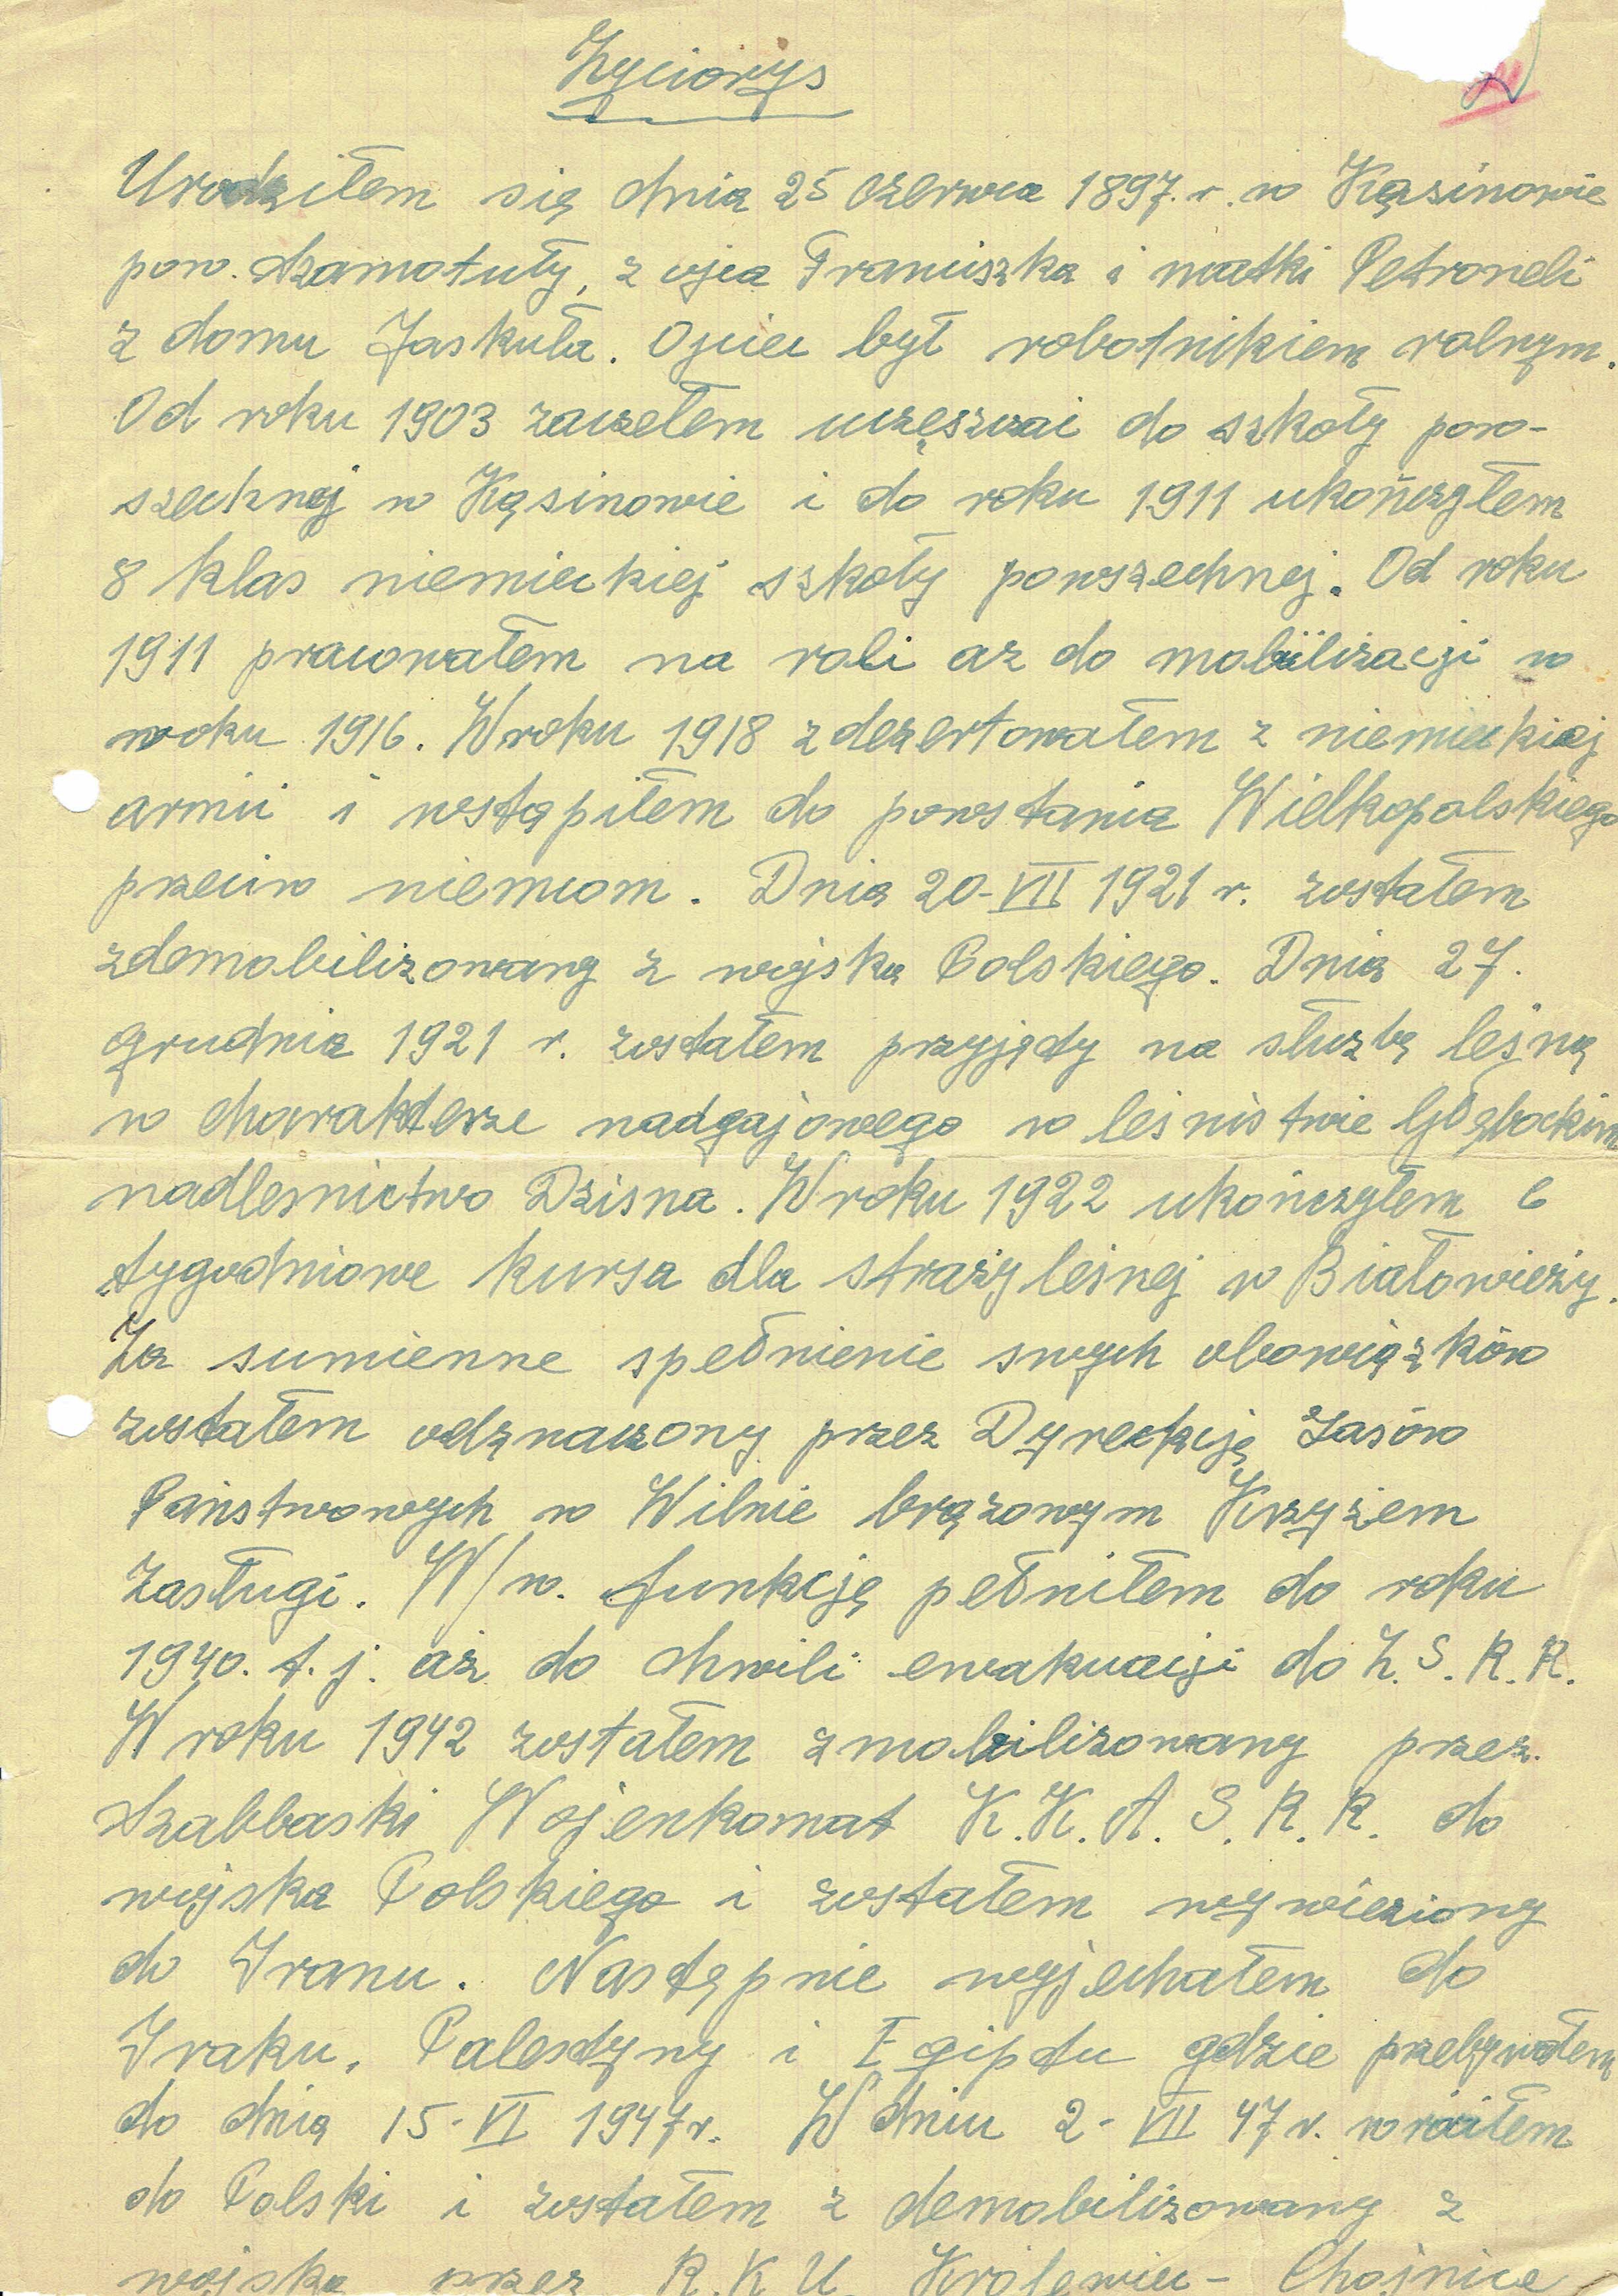 Życiorys
Urodziłem się dnia 25 czerwca 1897. r. w Kąsinowie
pow. Szamotuły, z ojca Franciszka i matki Petroneli
z domu Jaskuła. Ojciec był robotnikiem rolnym.
Od roku 1903 zacząłem uczęszczać do szkoły pow-
szechnej w Kąsinowie i do roku 1911 ukończyłem
8 klas niemieckiej szkoły powszechnej. Od roku
1911 pracowałem na roli aż do mobilizacji w
roku 1916. W roku 1918 zdezertowałem z niemieckiej
armii i wstąpiłem do powstania Wielkopolskiego
przeciw niemcom. Dnia 20-VII 1921 r. zostałem
zdemobilizowany z wojska Polskiego. Dnia 27.
grudnia 1921 r. zostałem przyjęty na służbę leśną
w charakterze nadgajowego w leśnistwie Głębockim
nadleśnictwo Dzisna. W roku 1922 ukończyłem 6
tygodniowe kursa dla straży leśnej w Białowieży.
Za sumienne spełnienie swych obowiązków
zostałem odznaczony przez Dyrekcję Lasów
Państwowych w Wilnie brązowym Krzyżem
Zasługi. W/w. funkcję pełniłem do roku
1940. t.j. aż do chwili ewakuacji do Z.S.R.R.
W roku 1942 zostałem zmobilizowany przez
Szabbaski Wojenkomat K.K.A.S.R.R. do
wojska Polskiego i zostałem wywieziony
do Iranu. Następnie wyjechałem do
Iraku, Palestyny i Egiptu gdzie przebywałem
do dnia 15-VI 1947r. W dniu 2-VII 47 r. wróciłem
do Polski i zostałem z demobilizowany z
wojska przez R.K.U. Królewiec- Chojnice